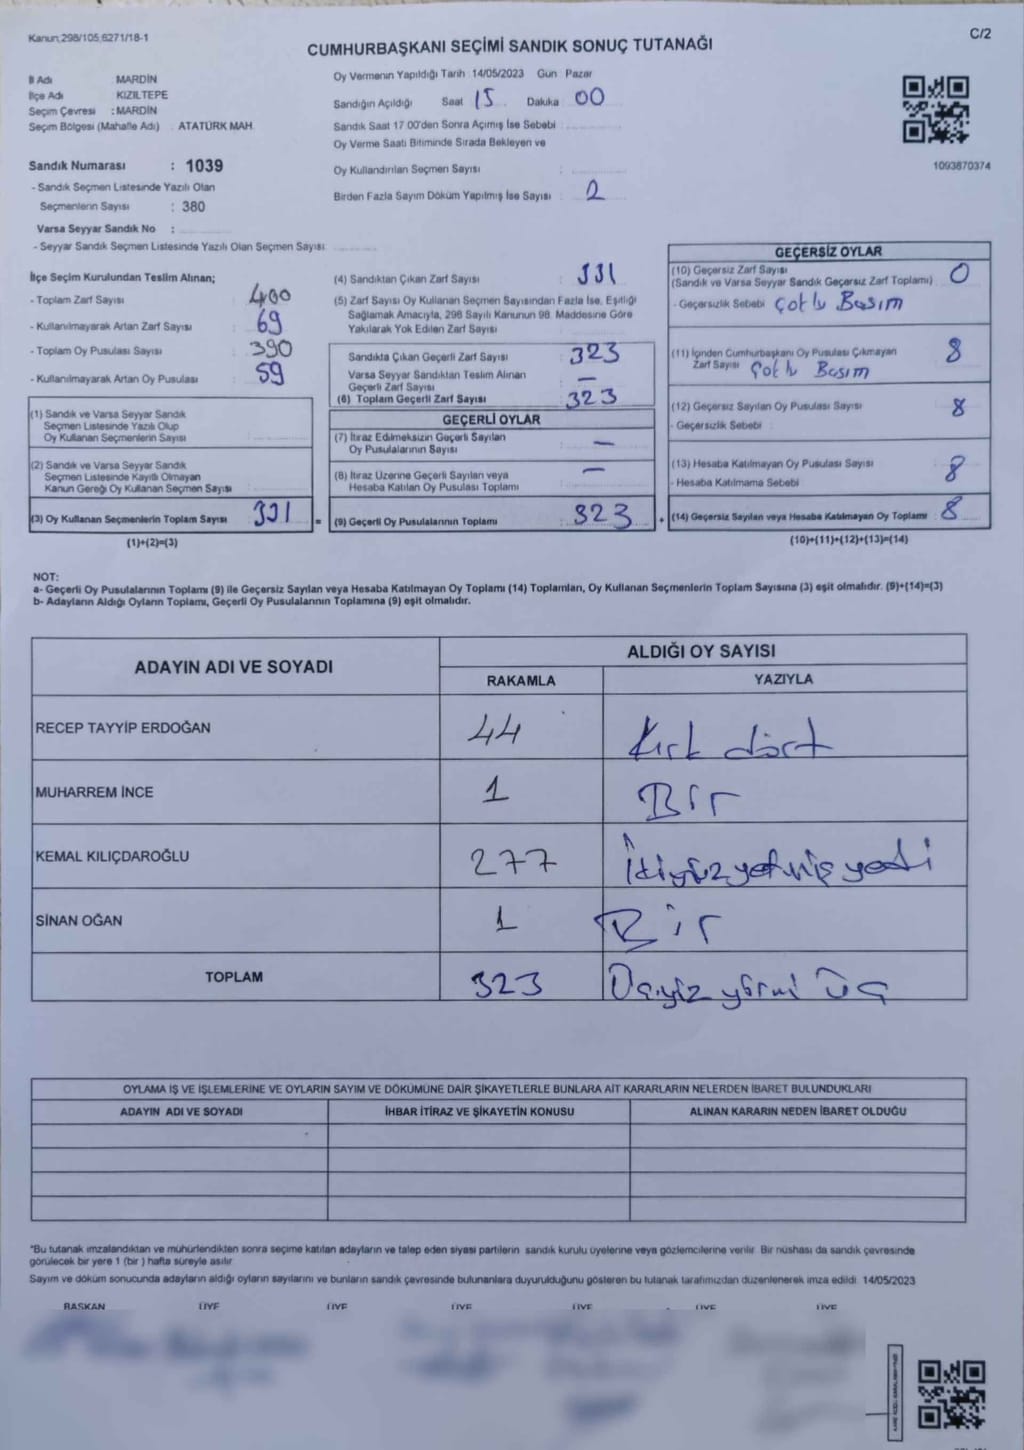 Kanun:298/105,6271/18-1
C/2
CUMHURBAŞKANI SEÇİMİ SANDIK SONUÇ TUTANAĞI
İl Adı MARDİN
İlçe Adı KIZILTEPE
Seçim Çevresi : MARDİN
Seçim Bölgesi (Mahalle Adı) : ATATÜRK MAH.
Oy Vermenin Yapıldığı Tarih 14/05/2023 Gün Pazar
Sandığın Açıldığı Saat 15 Dakika 00
Sandık Saat 17.00'den Sonra Açılmış İse Sebebi :
Oy Verme Saati Bitiminde Sırada Bekleyen ve
Oy Kullandırılan Seçmen Sayısı :
Birden Fazla Sayım Döküm Yapılmış İse Sayısı : 2
1093870374
Sandık Numarası : 1039
- Sandık Seçmen Listesinde Yazılı Olan
Seçmenlerin Sayısı : 380
Varsa Seyyar Sandık No :
- Seyyar Sandık Seçmen Listesinde Yazılı Olan Seçmen Sayısı:
İlçe Seçim Kurulundan Teslim Alınan;
- Toplam Zarf Sayısı : 400
- Kullanılmayarak Artan Zarf Sayısı : 69
- Toplam Oy Pusulası Sayısı : 390
- Kullanılmayarak Artan Oy Pusulası : 59
(1) Sandık ve Varsa Seyyar Sandık
Seçmen Listesinde Yazılı Olup
Oy Kullanan Seçmenlerin Sayısı
(2) Sandık ve Varsa Seyyar Sandık
Seçmen Listesinde Kayıtlı Olmayan
Kanun Gereği Oy Kullanan Seçmen Sayısı
(3) Oy Kullanan Seçmenlerin Toplam Sayısı 331 =
(1)+(2)=(3)
(4) Sandıktan Çıkan Zarf Sayısı : 331
(5) Zarf Sayısı Oy Kullanan Seçmen Sayısından Fazla İse, Eşitliği
Sağlamak Amacıyla, 298 Sayılı Kanunun 98. Maddesine Göre
Yakılarak Yok Edilen Zarf Sayısı :
Sandıkta Çıkan Geçerli Zarf Sayısı : 323
Varsa Seyyar Sandıktan Teslim Alınan
Geçerli Zarf Sayısı : —
(6) Toplam Geçerli Zarf Sayısı : 323
GEÇERLİ OYLAR
(7) İtiraz Edilmeksizin Geçerli Sayılan
Oy Pusulalarının Sayısı : —
(8) İtiraz Üzerine Geçerli Sayılan veya
Hesaba Katılan Oy Pusulası Toplamı : —
(9) Geçerli Oy Pusulalarının Toplamı : 323 +
GEÇERSİZ OYLAR
(10) Geçersiz Zarf Sayısı
(Sandık ve Varsa Seyyar Sandık Geçersiz Zarf Toplamı) : 0
- Geçersizlik Sebebi : Çoklu Basım
(11) İçinden Cumhurbaşkanı Oy Pusulası Çıkmayan
Zarf Sayısı Çoklu Basım 8
(12) Geçersiz Sayılan Oy Pusulası Sayısı : 8
- Geçersizlik Sebebi :
(13) Hesaba Katılmayan Oy Pusulası Sayısı : 8
- Hesaba Katılmama Sebebi
(14) Geçersiz Sayılan veya Hesaba Katılmayan Oy Toplamı : 8
(10)+(11)+(12)+(13)=(14)
NOT:
a- Geçerli Oy Pusulalarının Toplamı (9) ile Geçersiz Sayılan veya Hesaba Katılmayan Oy Toplamı (14) Toplamları, Oy Kullanan Seçmenlerin Toplam Sayısına (3) eşit olmalıdır. (9)+(14)=(3)
b- Adayların Aldığı Oyların Toplamı, Geçerli Oy Pusulalarının Toplamına (9) eşit olmalıdır.
ADAYIN ADI VE SOYADI
ALDIĞI OY SAYISI
RAKAMLA YAZIYLA
RECEP TAYYİP ERDOĞAN 44 Kırk dört
MUHARREM İNCE 1 Bir
KEMAL KILIÇDAROĞLU 277 İkiyüzyetmiş yedi
SİNAN OĞAN 1 Bir
TOPLAM 323 Üçyüz yirmi üç
OYLAMA İŞ VE İŞLEMLERİNE VE OYLARIN SAYIM VE DÖKÜMÜNE DAİR ŞİKAYETLERLE BUNLARA AİT KARARLARIN NELERDEN İBARET BULUNDUKLARI
ADAYIN ADI VE SOYADI İHBAR İTİRAZ VE ŞİKAYETİN KONUSU ALINAN KARARIN NEDEN İBARET OLDUĞU
*Bu tutanak imzalandıktan ve mühürlendikten sonra seçime katılan adayların ve talep eden siyasi partilerin sandık kurulu üyelerine veya gözlemcilerine verilir. Bir nüshası da sandık çevresinde
görülecek bir yere 1 (bir) hafta süreyle asılır.
Sayım ve döküm sonucunda adayların aldığı oyların sayılarını ve bunların sandık çevresinde bulunanlara duyurulduğunu gösteren bu tutanak tarafımızdan düzenlenerek imza edildi. 14/05/2023
BAŞKAN ÜYE ÜYE ÜYE ÜYE ÜYE ÜYE